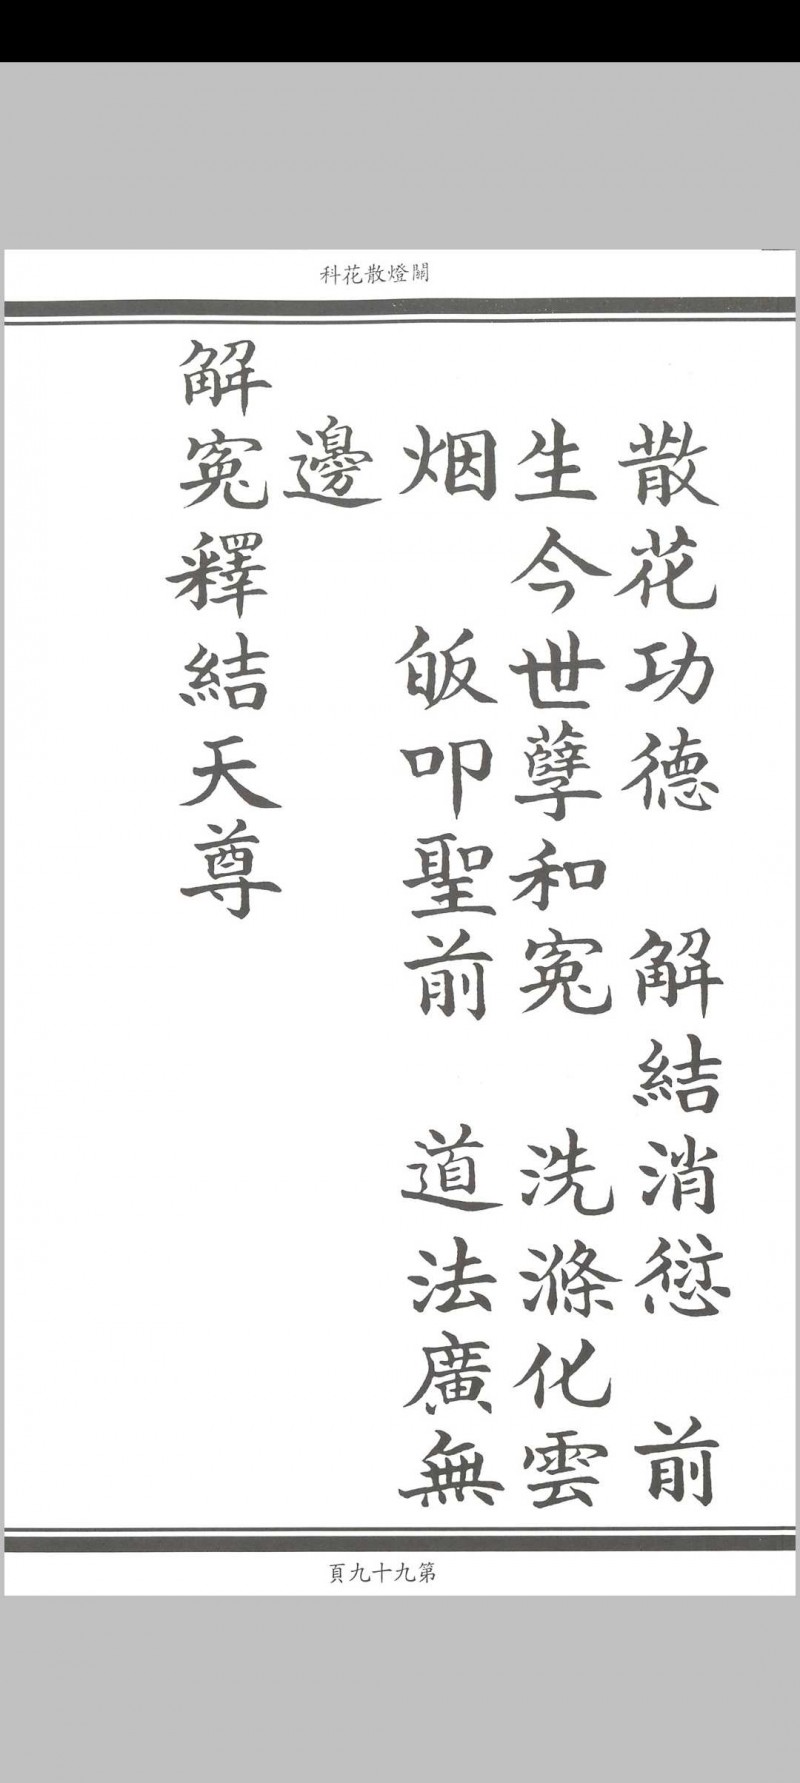 關燈散花科
散花功德　解結消愆　前
生今世孽和寃　洗滌化雲
烟　皈叩聖前　道法廣無
邊
解寃釋結天尊
第九十九頁